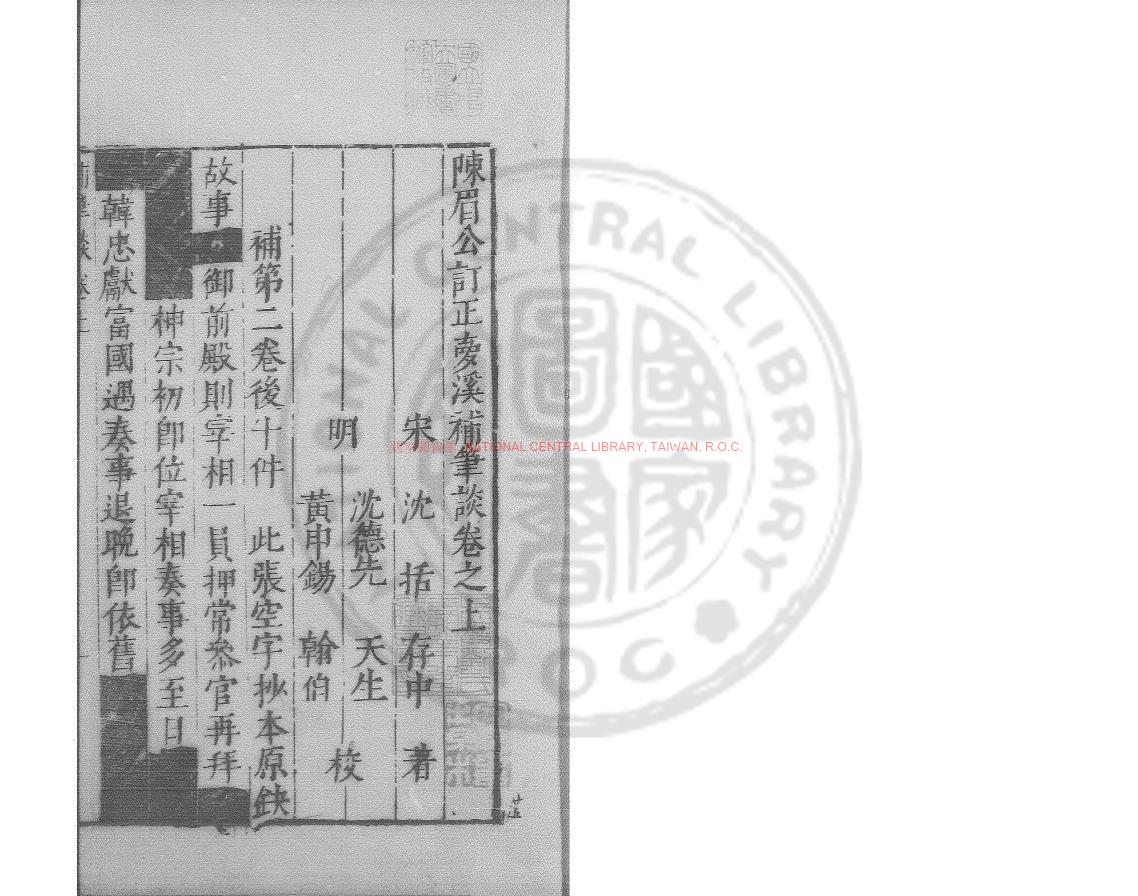 陳眉公訂正夢溪補筆談卷之上
宋 沈 括 存中 著
明 沈德先 天生
黃申錫 翰伯 校
補第二卷後十件 此張空字抄本原缺
故事 御前殿則宰相一員押常參官再拜
神宗初卽位宰相奏事多至日
韓忠獻富國遇奏事退晩卽依舊
NATIONAL CENTRAL LIBRARY, TAIWAN, R.O.C.
NATIONAL CENTRAL LIBRARY
R.O.C.
國家圖書